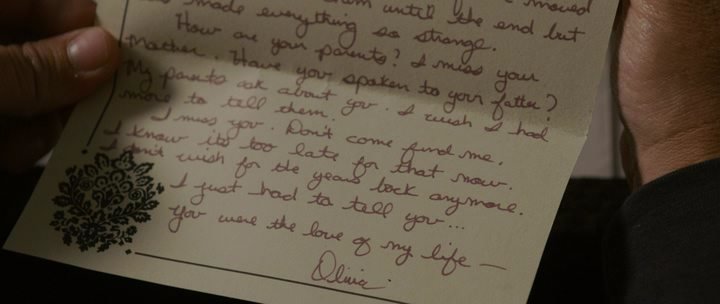 them until the end but
made everything so strange.
How are your parents? I miss your
mother. Have you spoken to your father?
My parents ask about you. I wish I had
more to tell them.
I miss you. Don't come find me.
I know its too late for that now.
I don't wish for the years back anymore.
I just had to tell you...
you were the love of my life —
Olivia